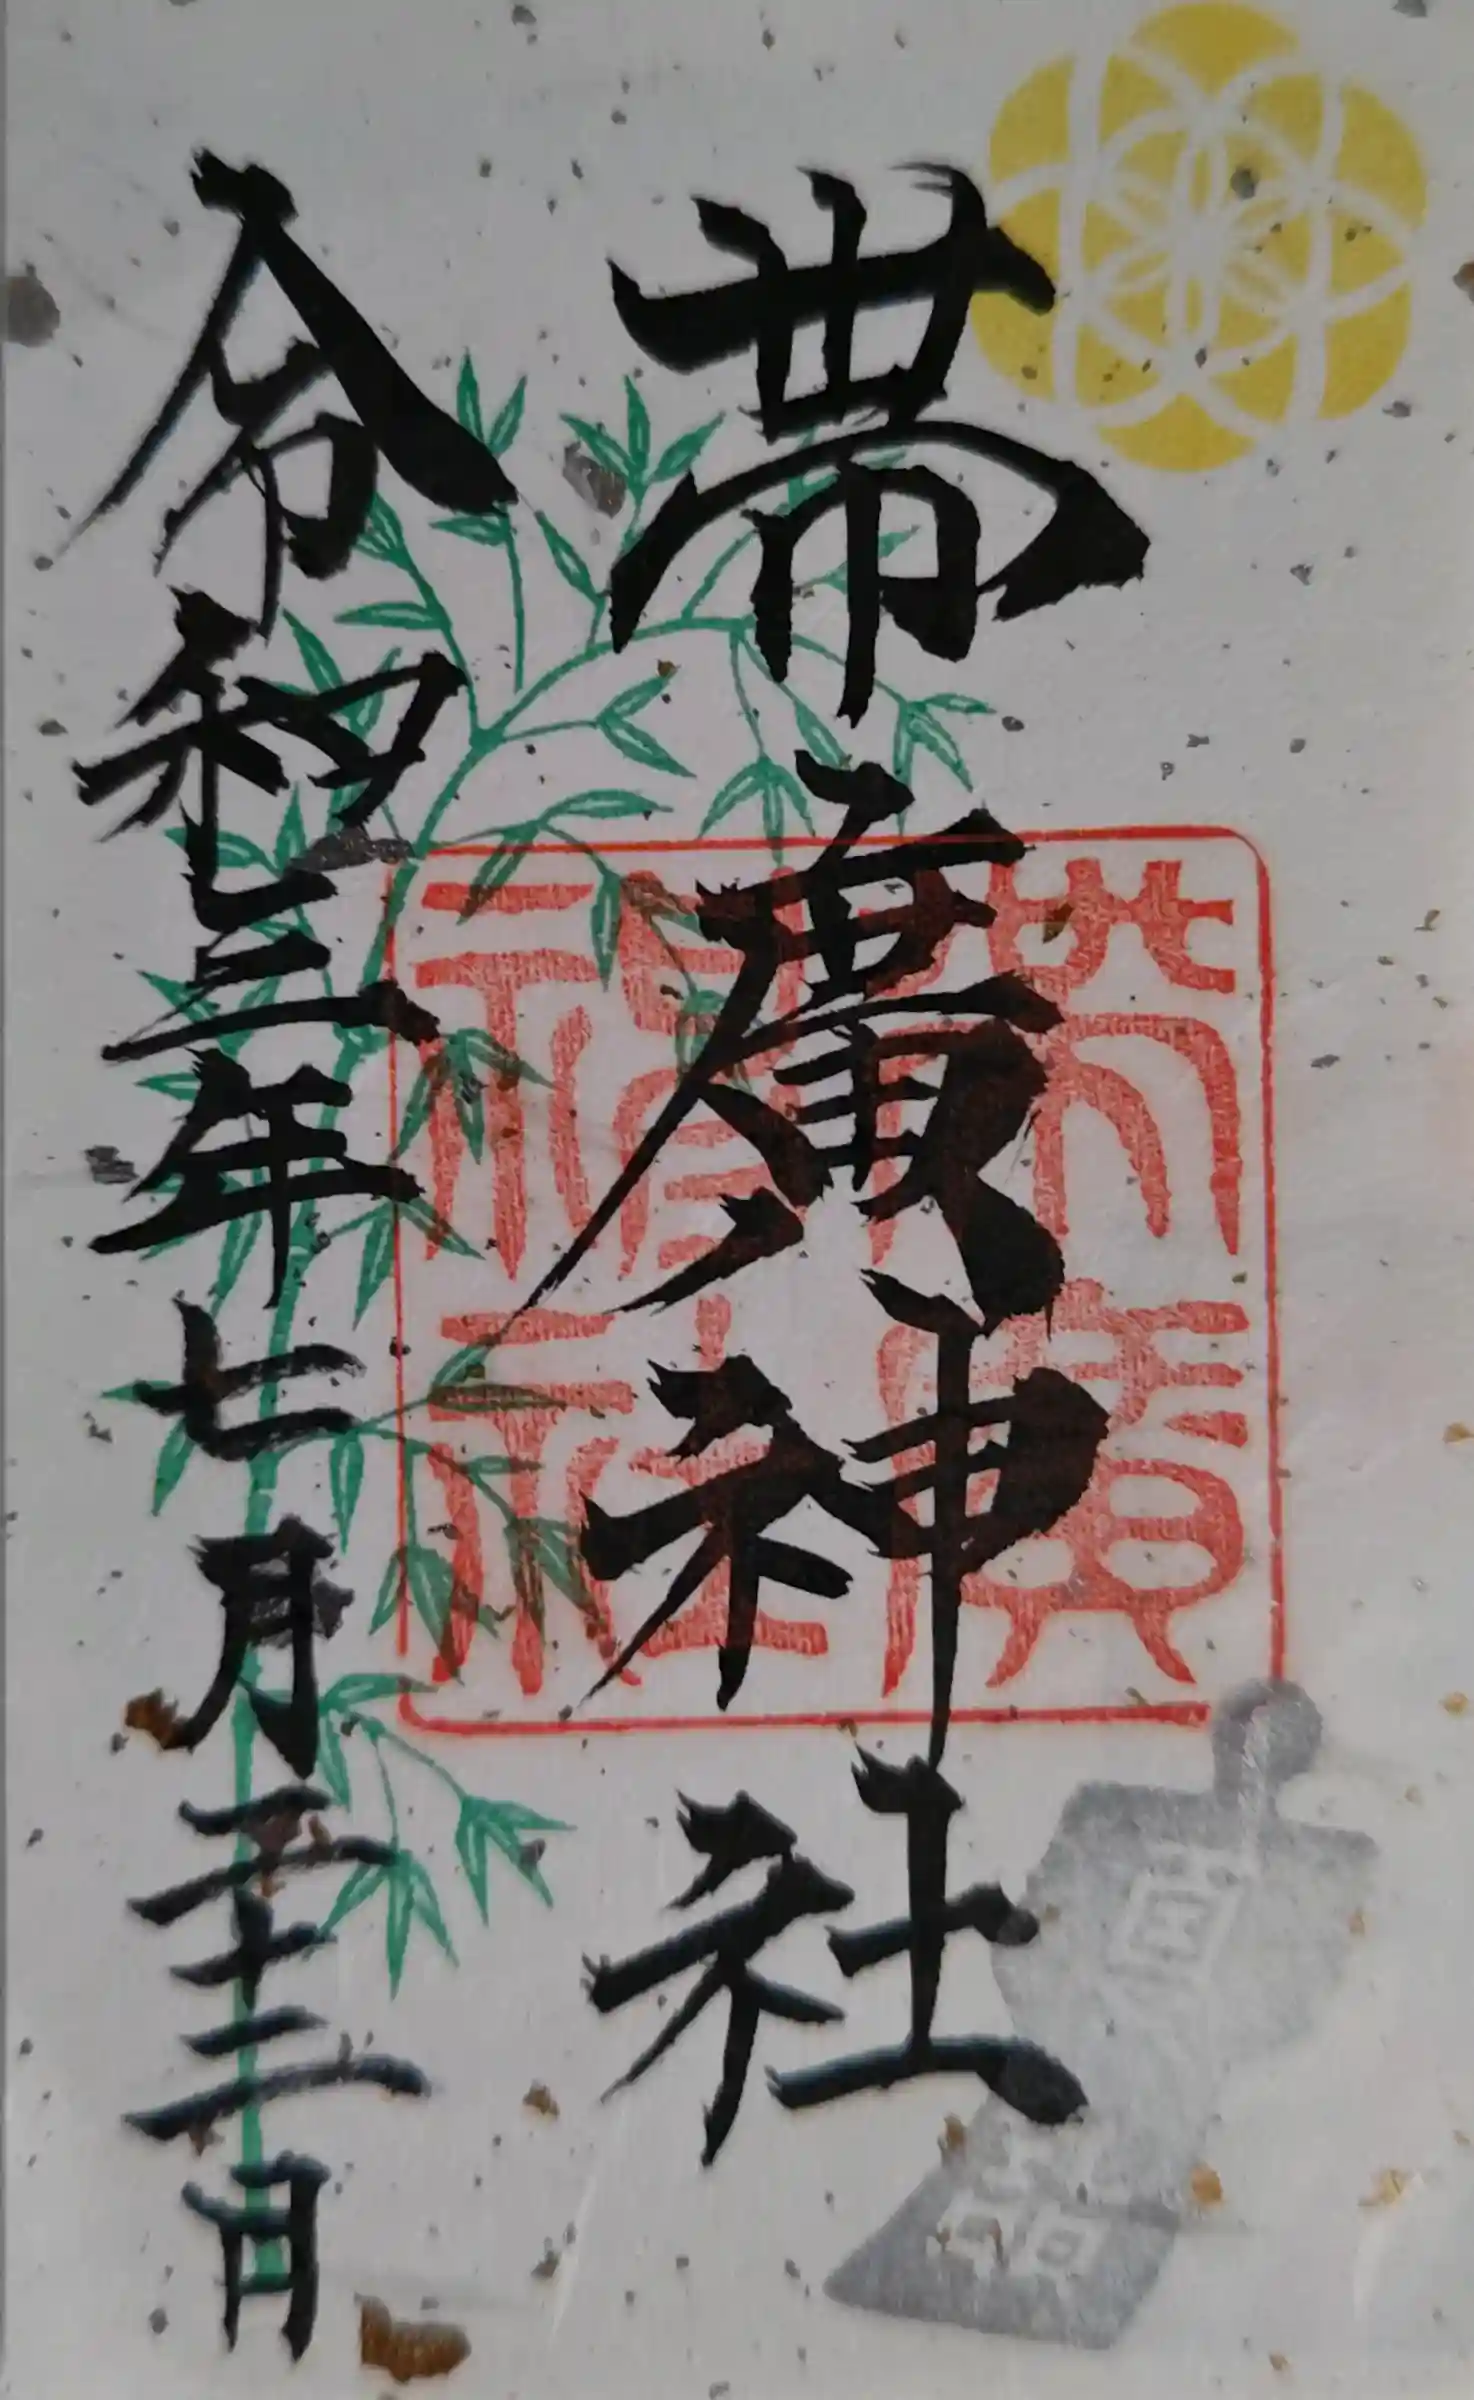 帯廣神社
令和三年七月二十二日
帯廣
神社